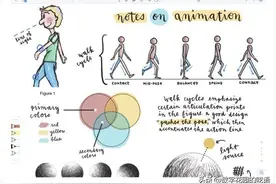 notes on animation
line of sight
walk cycle
CONTACT MID BALANCED STRIDE CONTACT
Figure 1
primary colors
red
yellow
blue
secondary colors
walk cycles emphasize
certain articulation points
in the figure a good design
"pushes the pose", which then
accentuates the action line
light source